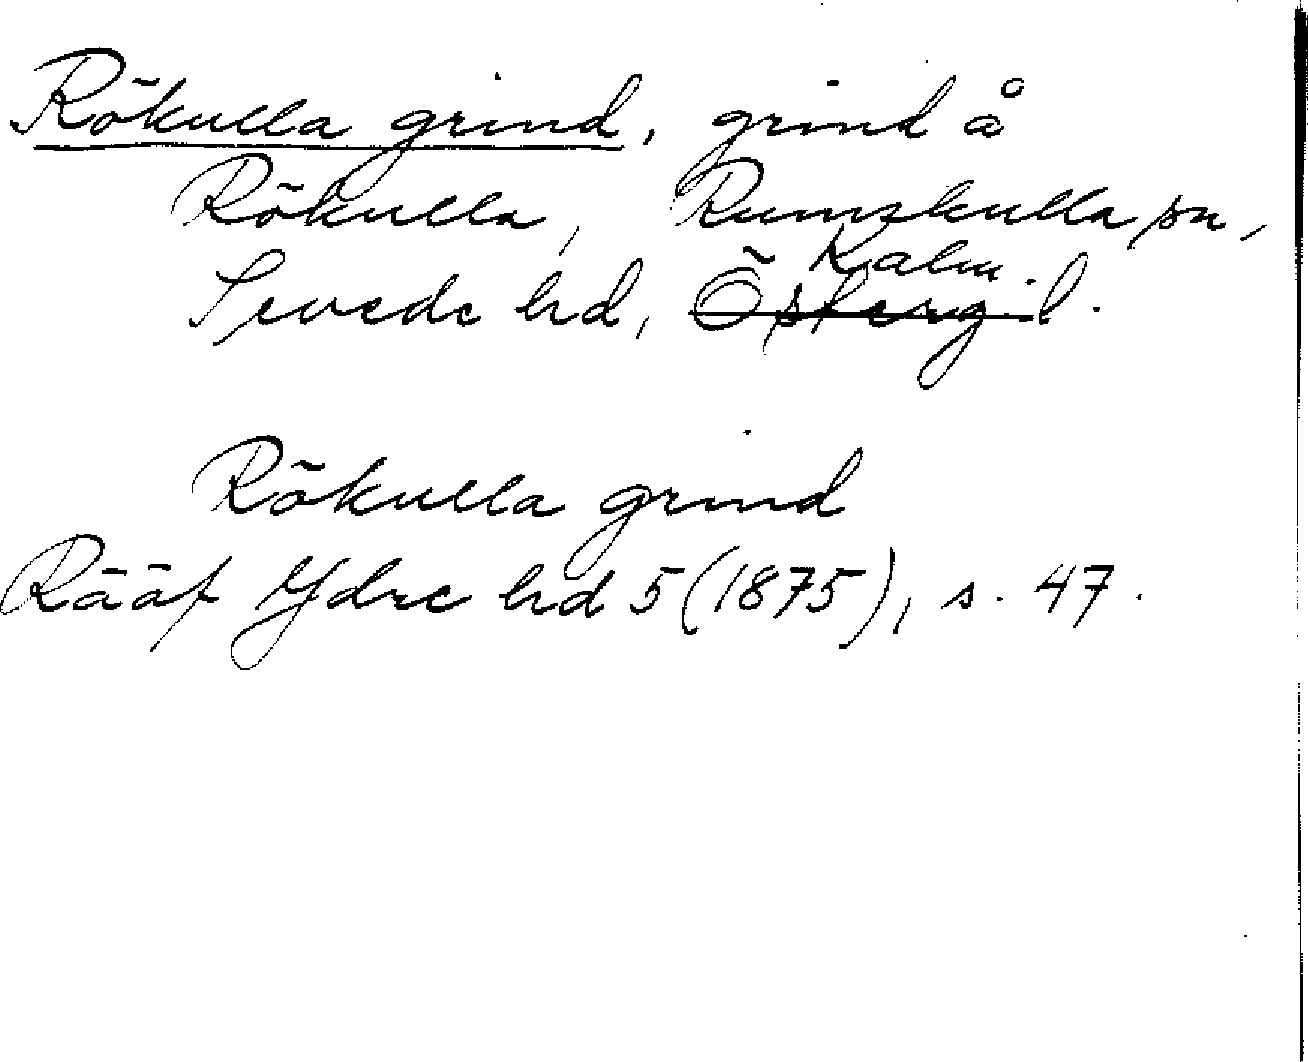 Rökulla grind, grind å
Rökulla, Rumskulla sn,
Sevede hd, Östergi. Kalm. l.
Rökulla grind
Rääf Ydre hd 5 (1875), s. 47.